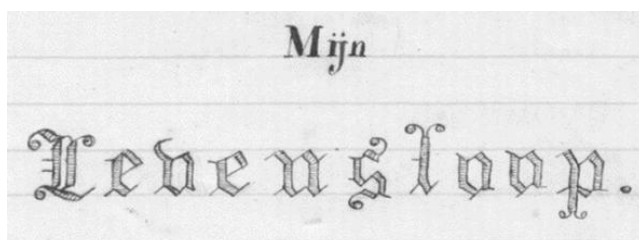 Mijn
Levensloop.